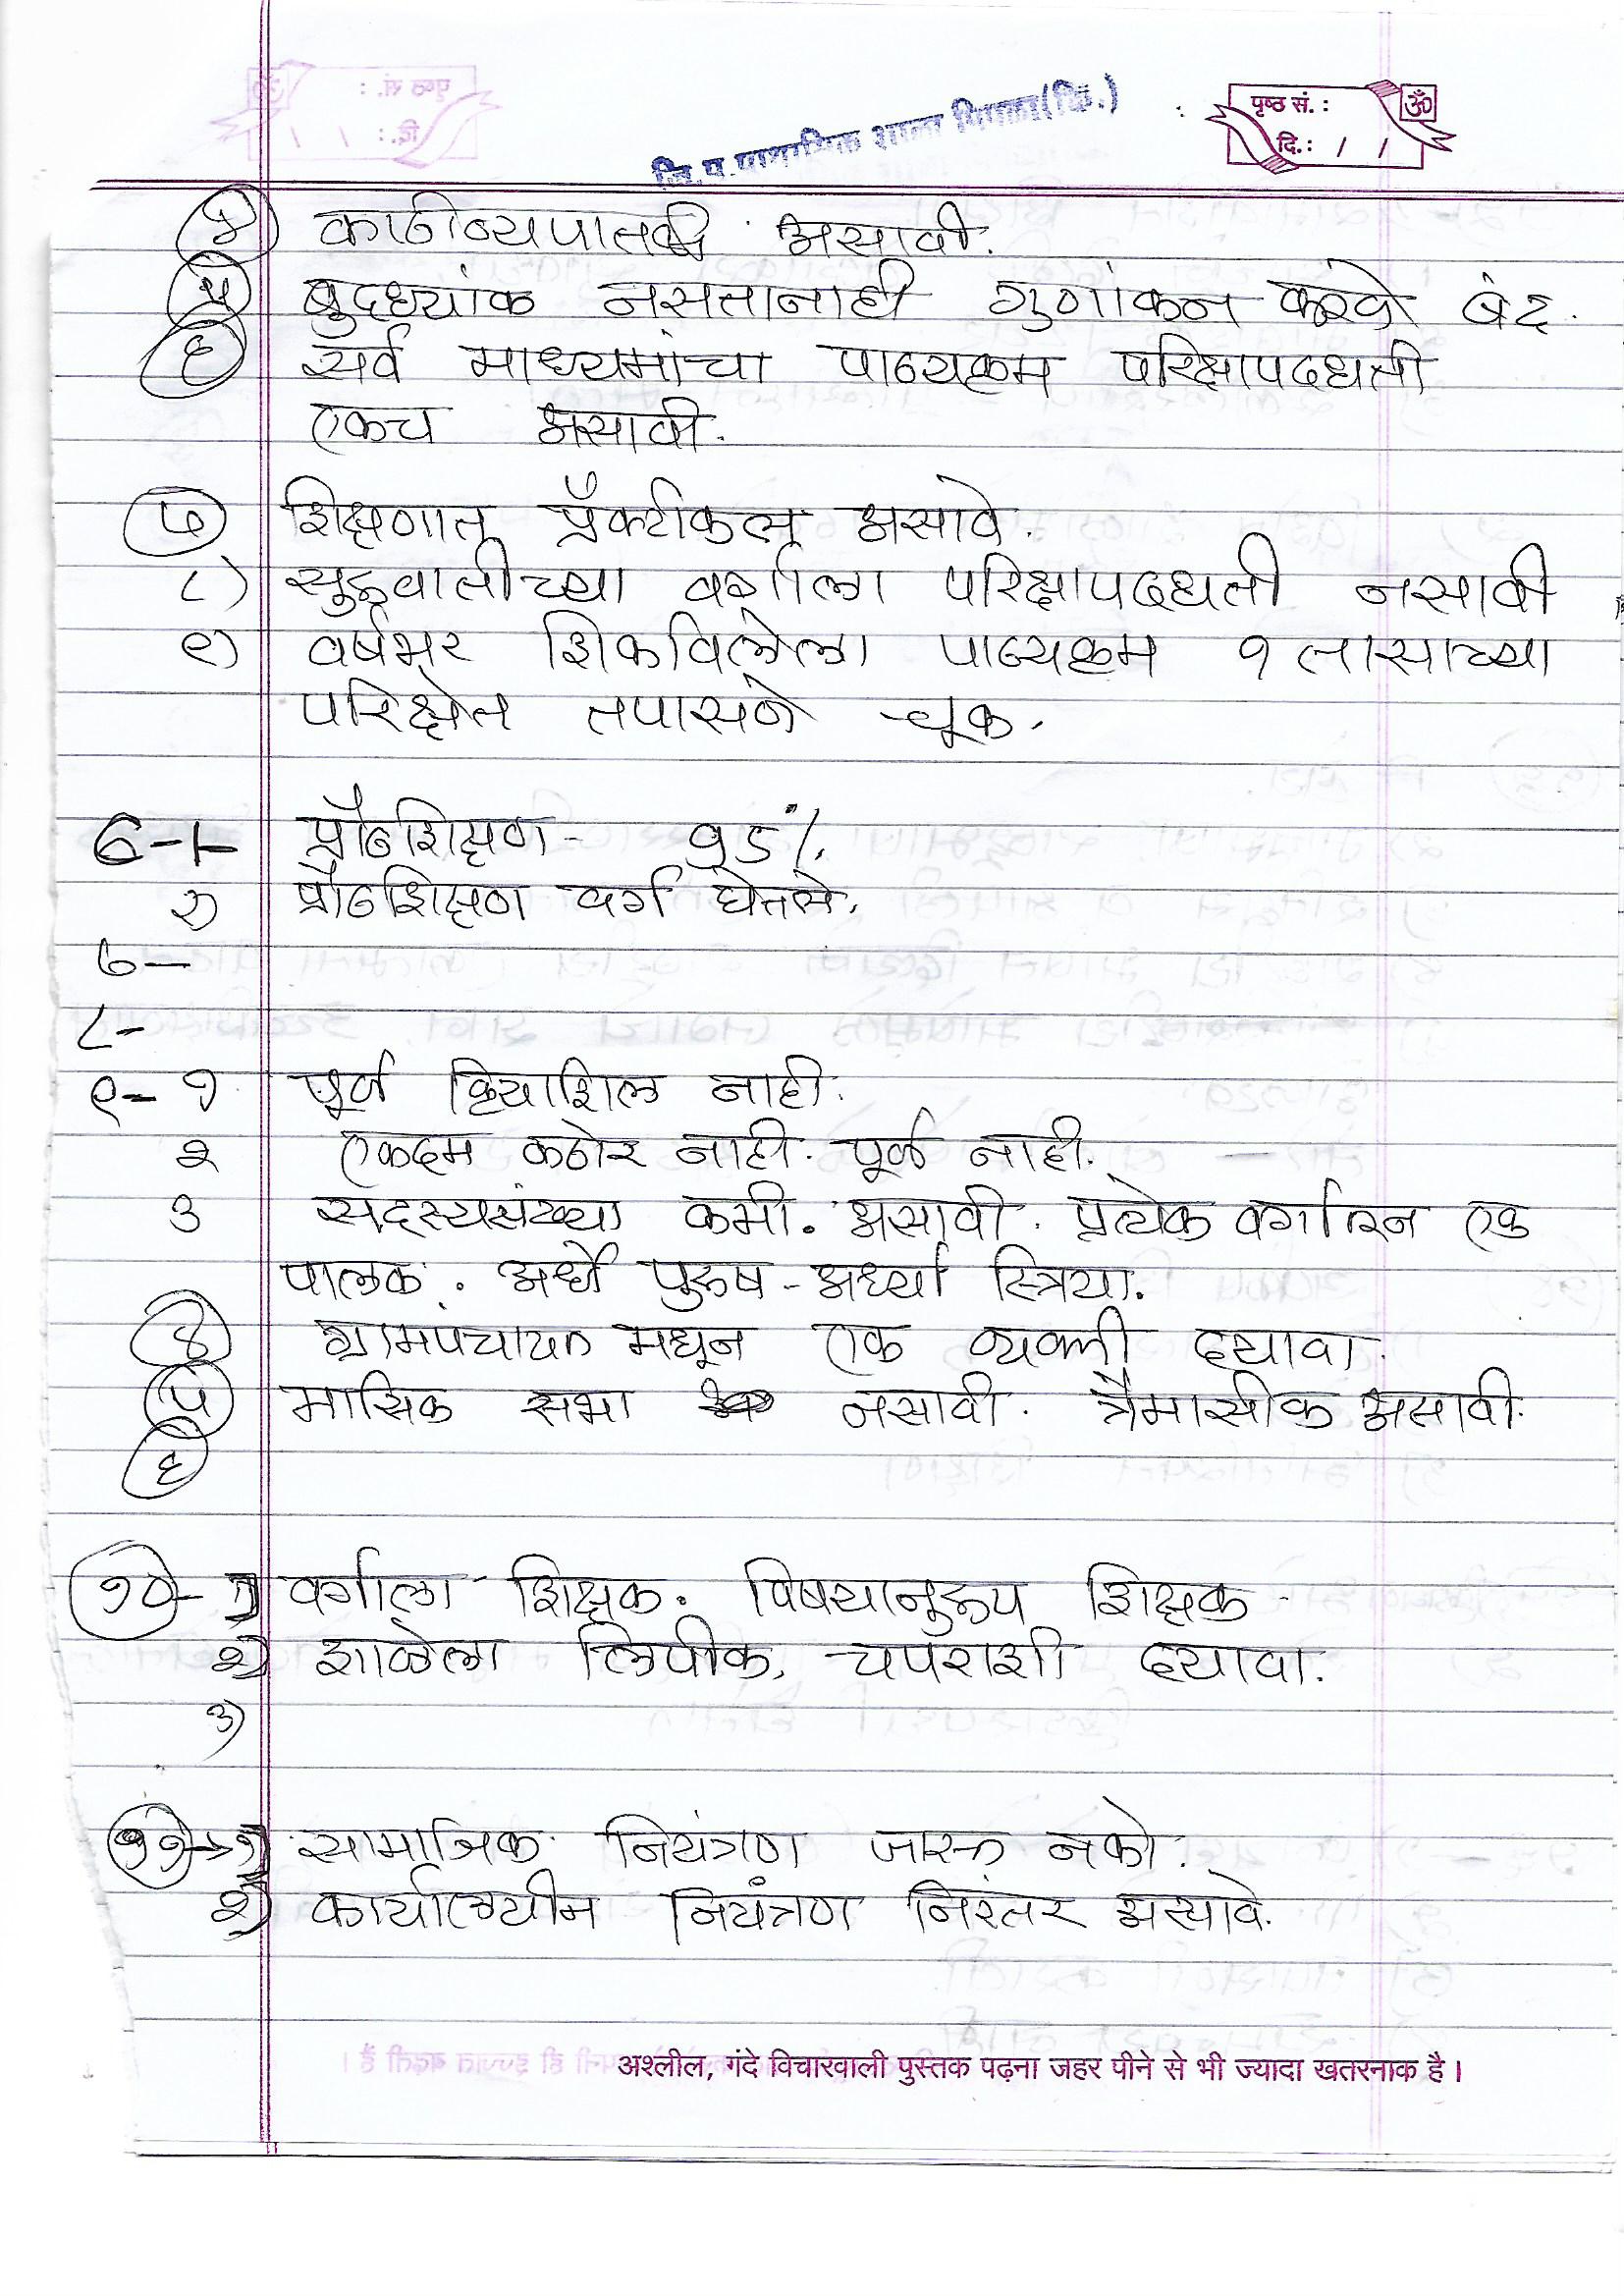 पृष्ठ सं. :
ॐ
दि.: / /
जि.प.प्राथमिक शाळा (कि.)
४) काठीण्यपातळी असावी.
५) बुद्ध्यांक नसतानाही गुणांकन करणे बंद.
६) सर्व माध्यमांचा पाठ्यक्रम परिक्षापद्धती
एकच असावी.
७) शिक्षणात प्रॅक्टीकल असावे.
८) सुरुवातीच्या वर्गाला परिक्षापद्धती नसावी
९) वर्षभर शिकविलेला पाठ्यक्रम १ तासाच्या
परिक्षेत तपासणे चूक.
६-१- प्रौढशिक्षण - १५%.
२) प्रौढशिक्षण वर्ग घेतले.
७-
८-
९- १ पूर्ण क्रियाशिल नाही.
२ एकदम कठोर नाही. पूर्ण नाही.
३ सदस्यसंख्या कमी. असावी. प्रत्येक वर्गातून एक
पालक. अर्धे पुरुष - अर्ध्या स्त्रिया.
४ ग्रामपंचायत मधून एक व्यक्ती द्यावा.
५ मासिक सभा नसावी. त्रैमासीक असावी.
६
१०- १) वर्गाला शिक्षक. विषयानुरूप शिक्षक -
२) शाळेला लिपीक, चपराशी द्यावा.
३)
११→१) सामाजिक नियंत्रण जास्त नको.
२) कार्यालयीन नियंत्रण निरंतर असावे.
अश्लील, गंदे विचारवाली पुस्तक पढ़ना जहर पीने से भी ज्यादा खतरनाक है।